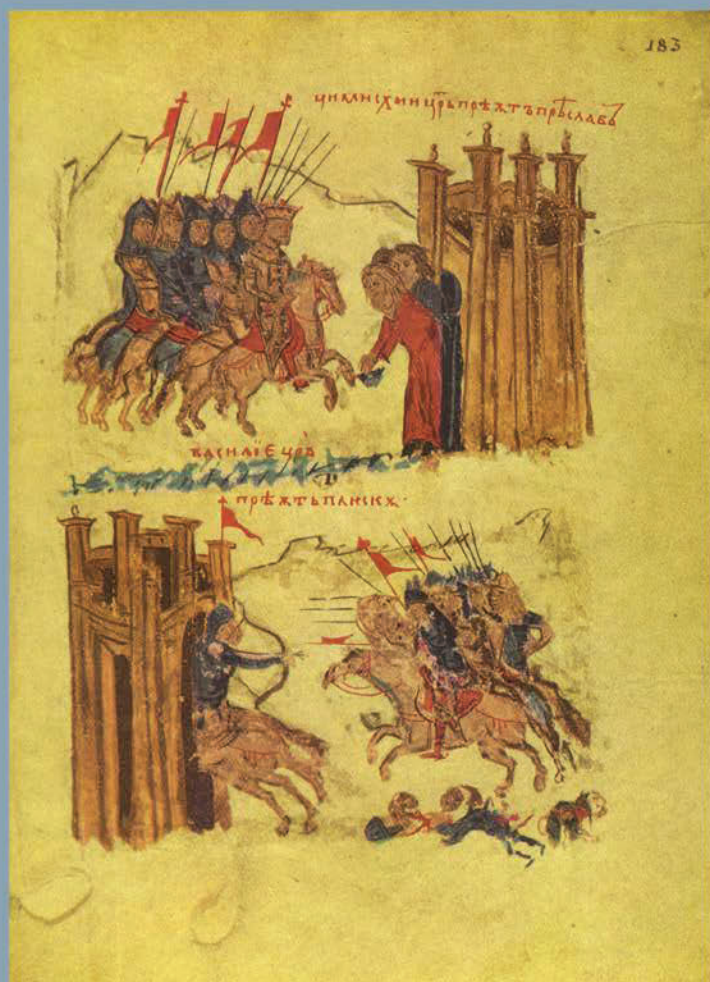 183
цимисхии цр҃ь прѣѧтъ прѣславъ
василіе цр҃ь
прѣѧть плискѫ